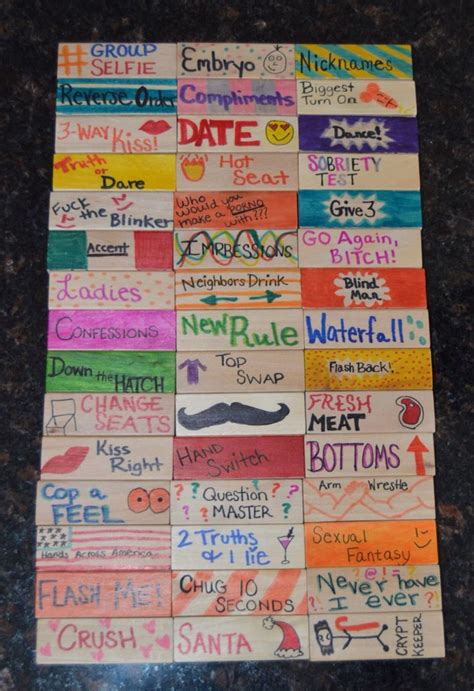 # GROUP
SELFIE
Embryo
Nicknames
Reverse Order
Compliments
Biggest
Turn On
3-WAY
Kiss!
DATE
Dance!
Truth
or
Dare
Hot
Seat
SOBRIETY
TEST
Fuck
the Blinker
Who
would you
make a PORNO
with???
Give 3
Accent
IMPRESSIONS
GO Again,
BITCH!
Ladies
Neighbors Drink
Blind
Man
CONFESSIONS
New Rule
Waterfall
Down the
HATCH
TOP
SWAP
Flash Back!
CHANGE
SEATS
FRESH
MEAT
Kiss
Right
HAND
Switch
BOTTOMS
Cop a
FEEL
? Question ?
MASTER
Arm Wrestle
Hands Across America
2 Truths
& 1 lie
Sexual
Fantasy
FLASH ME!
CHUG 10
SECONDS
Never have
I ever
CRUSH
SANTA
CRYPT
KEEPER